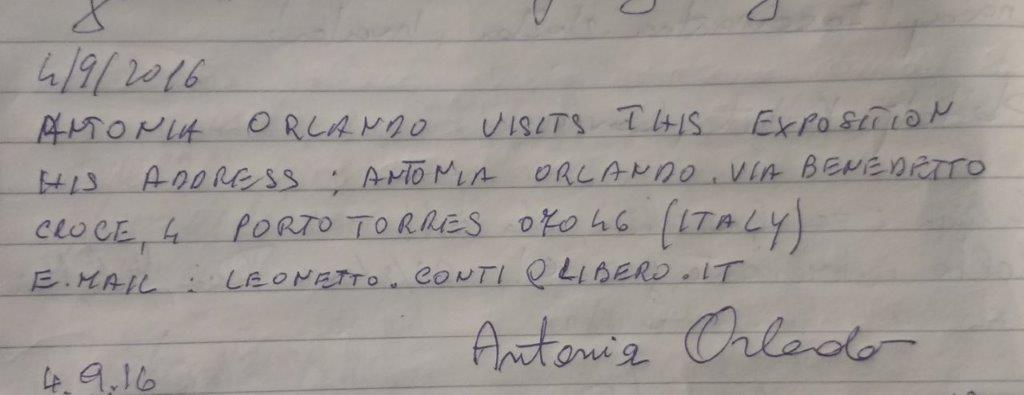 4/9/2016
ANTONIA ORLANDO VISITS THIS EXPOSITION
HIS ADDRESS : ANTONIA ORLANDO. VIA BENEDETTO
CROCE, 4 PORTO TORRES 07046 (ITALY)
E.MAIL : LEONETTO.CONTI@LIBERO.IT
Antonia Orlando
4.9.16